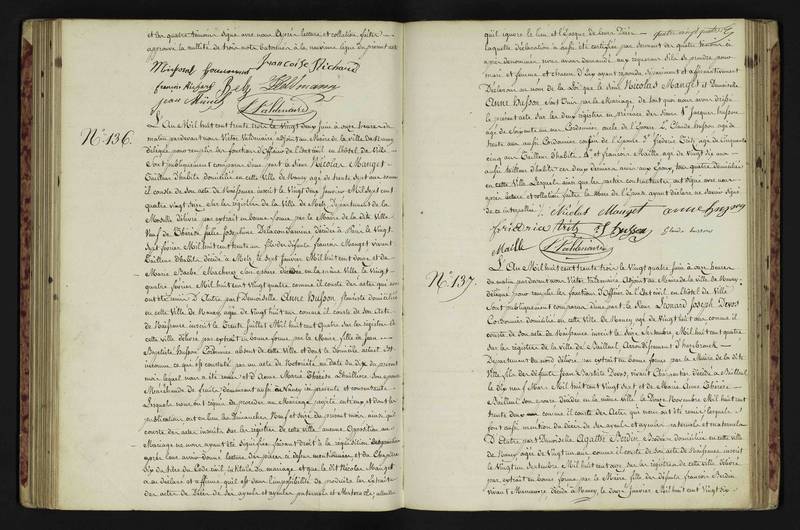 et les quatre témoins signé avec nous après lecture et collation faite
approuvé la nullité de trois mots à la neuvième ligne du présent acte
Françoise Richard
Jean
Valdenaire
N° 136.
L'An Mil huit cent trente trois le Vingt deux Juin à onze heures du
matin pardevant nous Victor Valdenaire adjoint au Maire de la ville de Nancy
délégué pour remplir les fonctions d'Officier de l'Etat civil en l'hôtel de Ville
Sont publiquement comparus d'une part le Sieur Nicolas Manget
Tailleur d'habits domicilié en cette Ville de Nancy agé de trente sept ans comme
il conste de son acte de Naissance inscrit le Vingt deux Janvier Mil sept cent
quatre vingt seize sur les registres de la ville de Metz Département de la
Moselle délivré par extrait en bonne forme par le Maire de la dite Ville
Veuf de Thérèse Julie Joséphine décédée à Paris le Vingt
sept février Mil huit cent trente un fils des défunts françois Manget vivant
Tailleur d'habits décédé à Metz le sept Janvier Mil huit cent douze et de
Marie Barbe son épouse décédée en la même Ville le Vingt
quatre février Mil huit cent vingt quatre comme il conste des actes qui nous
ont été remis D'Autre part Demoiselle Anne Husson fleuriste domiciliée
en cette Ville de Nancy agée de Vingt huit ans comme il conste de son Acte
de Naissance inscrit le Trente Juillet Mil huit cent Quatre sur les registres de
cette ville délivré par extrait en bonne forme par le Maire fille de Jean
Baptiste Husson Cordonnier absent de cette Ville et dont le domicile actuel est
inconnu ce qui est constaté par un acte de Notoriété en date du dix du présent
mois lequel nous a été remis et d'Anne Marie Thérèse Lhuillière son épouse
Marchande de fruits demeurant aussi à Nancy ici présente et consentante
Lesquels nous ont requis de procéder au Mariage projeté entr'eux et dont les
publications ont eu lieu les Dimanches Neuf et Seize du présent mois ainsi qu'il
conste des actes inscrits sur les registres de cette ville aucune Opposition au
Mariage ne nous ayant été signifiée faisant droit à la réquisition des parties
après leur avoir donné lecture des pièces ci dessus mentionnées et du Chapitre
Six du titre du Code civil intitulé du mariage et que le dit Nicolas Manget
a déclaré et affirmé qu'il est dans l'impossibilité de produire les Extraits
des actes de Décès de ses ayeuls et ayeules paternels et Maternels, attendu
qu'il ignore le lieu et l'époque de leurs Décès
laquelle déclaration a aussi été certifiée par serment des quatre témoins ci
après dénommés, nous avons demandé aux requérans s'ils se prendre pour
mari et femme et chacun d'Eux ayant répondu séparément et affirmativement
Déclarons au nom de la Loi que le Sieur Nicolas Manget et Demoiselle
Anne Husson Sont Unis par le Mariage de tout quoi nous avons dressé
le présent acte sur les deux registres en présence des Sieurs 1° Jacques Husson
agé de Soixante un ans Cordonnier oncle de l'Epouse 2° Claude Husson agé de
trente ans aussi Cordonnier cousin de l'Epouse 3° Frédéric Fritz agé de cinquante
cinq ans Tailleur d'habits 4° et François Maille agé de Vingt dix ans
aussi Tailleur d'habits ces deux derniers amis aux Epoux, tous quatre domiciliés
en cette Ville Lesquels ainsi que les parties contractantes ont signé avec nous
après lecture et collation faite la Mère de l'Epouse ayant déclaré ne Savoir signer
de ce interpellée
Nicolas Manget anne husson
friderice fritz Husson
Claude husson
Maille
Valdenaire
N° 137.
L'An Mil huit cent trente trois le Vingt quatre Juin à onze heures
du matin pardevant nous Victor Valdenaire Adjoint au Maire de la ville de Nancy
délégué pour remplir les fonctions d'Officier de l'Etat civil en l'hôtel de Ville
Sont publiquement comparus d'une part le Sieur Léonard Joseph Devos
Cordonnier domicilié en cette Ville de Nancy agé de Vingt huit ans comme il
conste de son acte de Naissance inscrit le Septembre Mil huit cent quatre
sur les registres de la ville de Bailleul Arrondissement d'Hazebrouck
Département du nord délivré par extrait en bonne forme par le Maire de la dite
Ville fils des défunts Jean Baptiste Devos, vivant Charpentier décédé à Bailleul
le dix neuf Mars Mil huit cent vingt et de Marie Anne Thérèse
Bailleul son épouse décédée en la même ville le Douze Novembre Mil huit cent
trente deux comme il conste des Actes qui nous ont été remis lesquels
font aussi mention du décès de ses ayeuls et ayeules paternels et maternels
D'Autre part Demoiselle Agathe Berdin Brodeuse domiciliée en cette ville
de Nancy agée de Vingt un ans comme il conste de son acte de Naissance inscrit
le Vingt un Septembre Mil huit cent onze sur les registres de cette ville délivré
par extrait en bonne forme par le Maire fille des défunts François Berdin
vivant Manœuvre décédé à Nancy le douze Janvier Mil huit cent Vingt dix